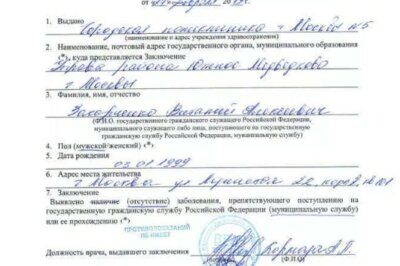 от
1. Выдано Городская поликлиника г Москвы №5
(наименование и адрес учреждения здравоохранения)
2. Наименование, почтовый адрес государственного органа, муниципального образования
(*), куда представляется Заключение
Управа района Южное Медведково
г Москвы
3. Фамилия, имя, отчество
Виталий Алексеевич
(Ф.И.О. государственного гражданского служащего Российской Федерации,
муниципального служащего либо лица, поступающего на государственную
гражданскую службу Российской Федерации, муниципальную службу)
4. Пол (мужской/женский) (*)
5. Дата рождения
03.01.1999
6. Адрес места жительства
г Москва ул
7. Заключение
Выявлено наличие (отсутствие) заболевания, препятствующего поступлению на
государственную гражданскую службу Российской Федерации (муниципальную службу)
или ее прохождению (*)
ПРОТИВОПОКАЗАНИЙ
НЕ ИМЕЕТ
Должность врача, выдавшего заключение
(подпись) (Ф.И.О)